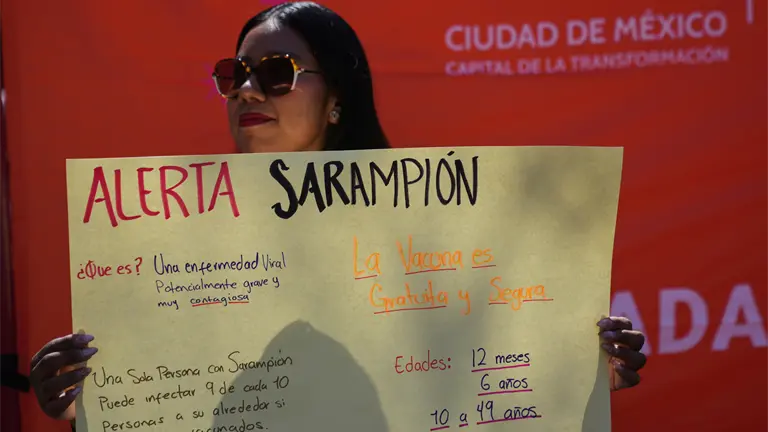 CIUDAD DE MÉXICO
CAPITAL DE LA TRANSFORMACIÓN
ALERTA SARAMPIÓN
¿Que es? Una enfermedad Viral
Potencialmente grave y
muy contagiosa
Una Sola Persona con Sarampión
Puede infectar 9 de cada 10
Personas a su alrededor si
La Vacuna es
Gratuita y Segura
Edades: 12 meses
6 años
10 a 49 años
ADA